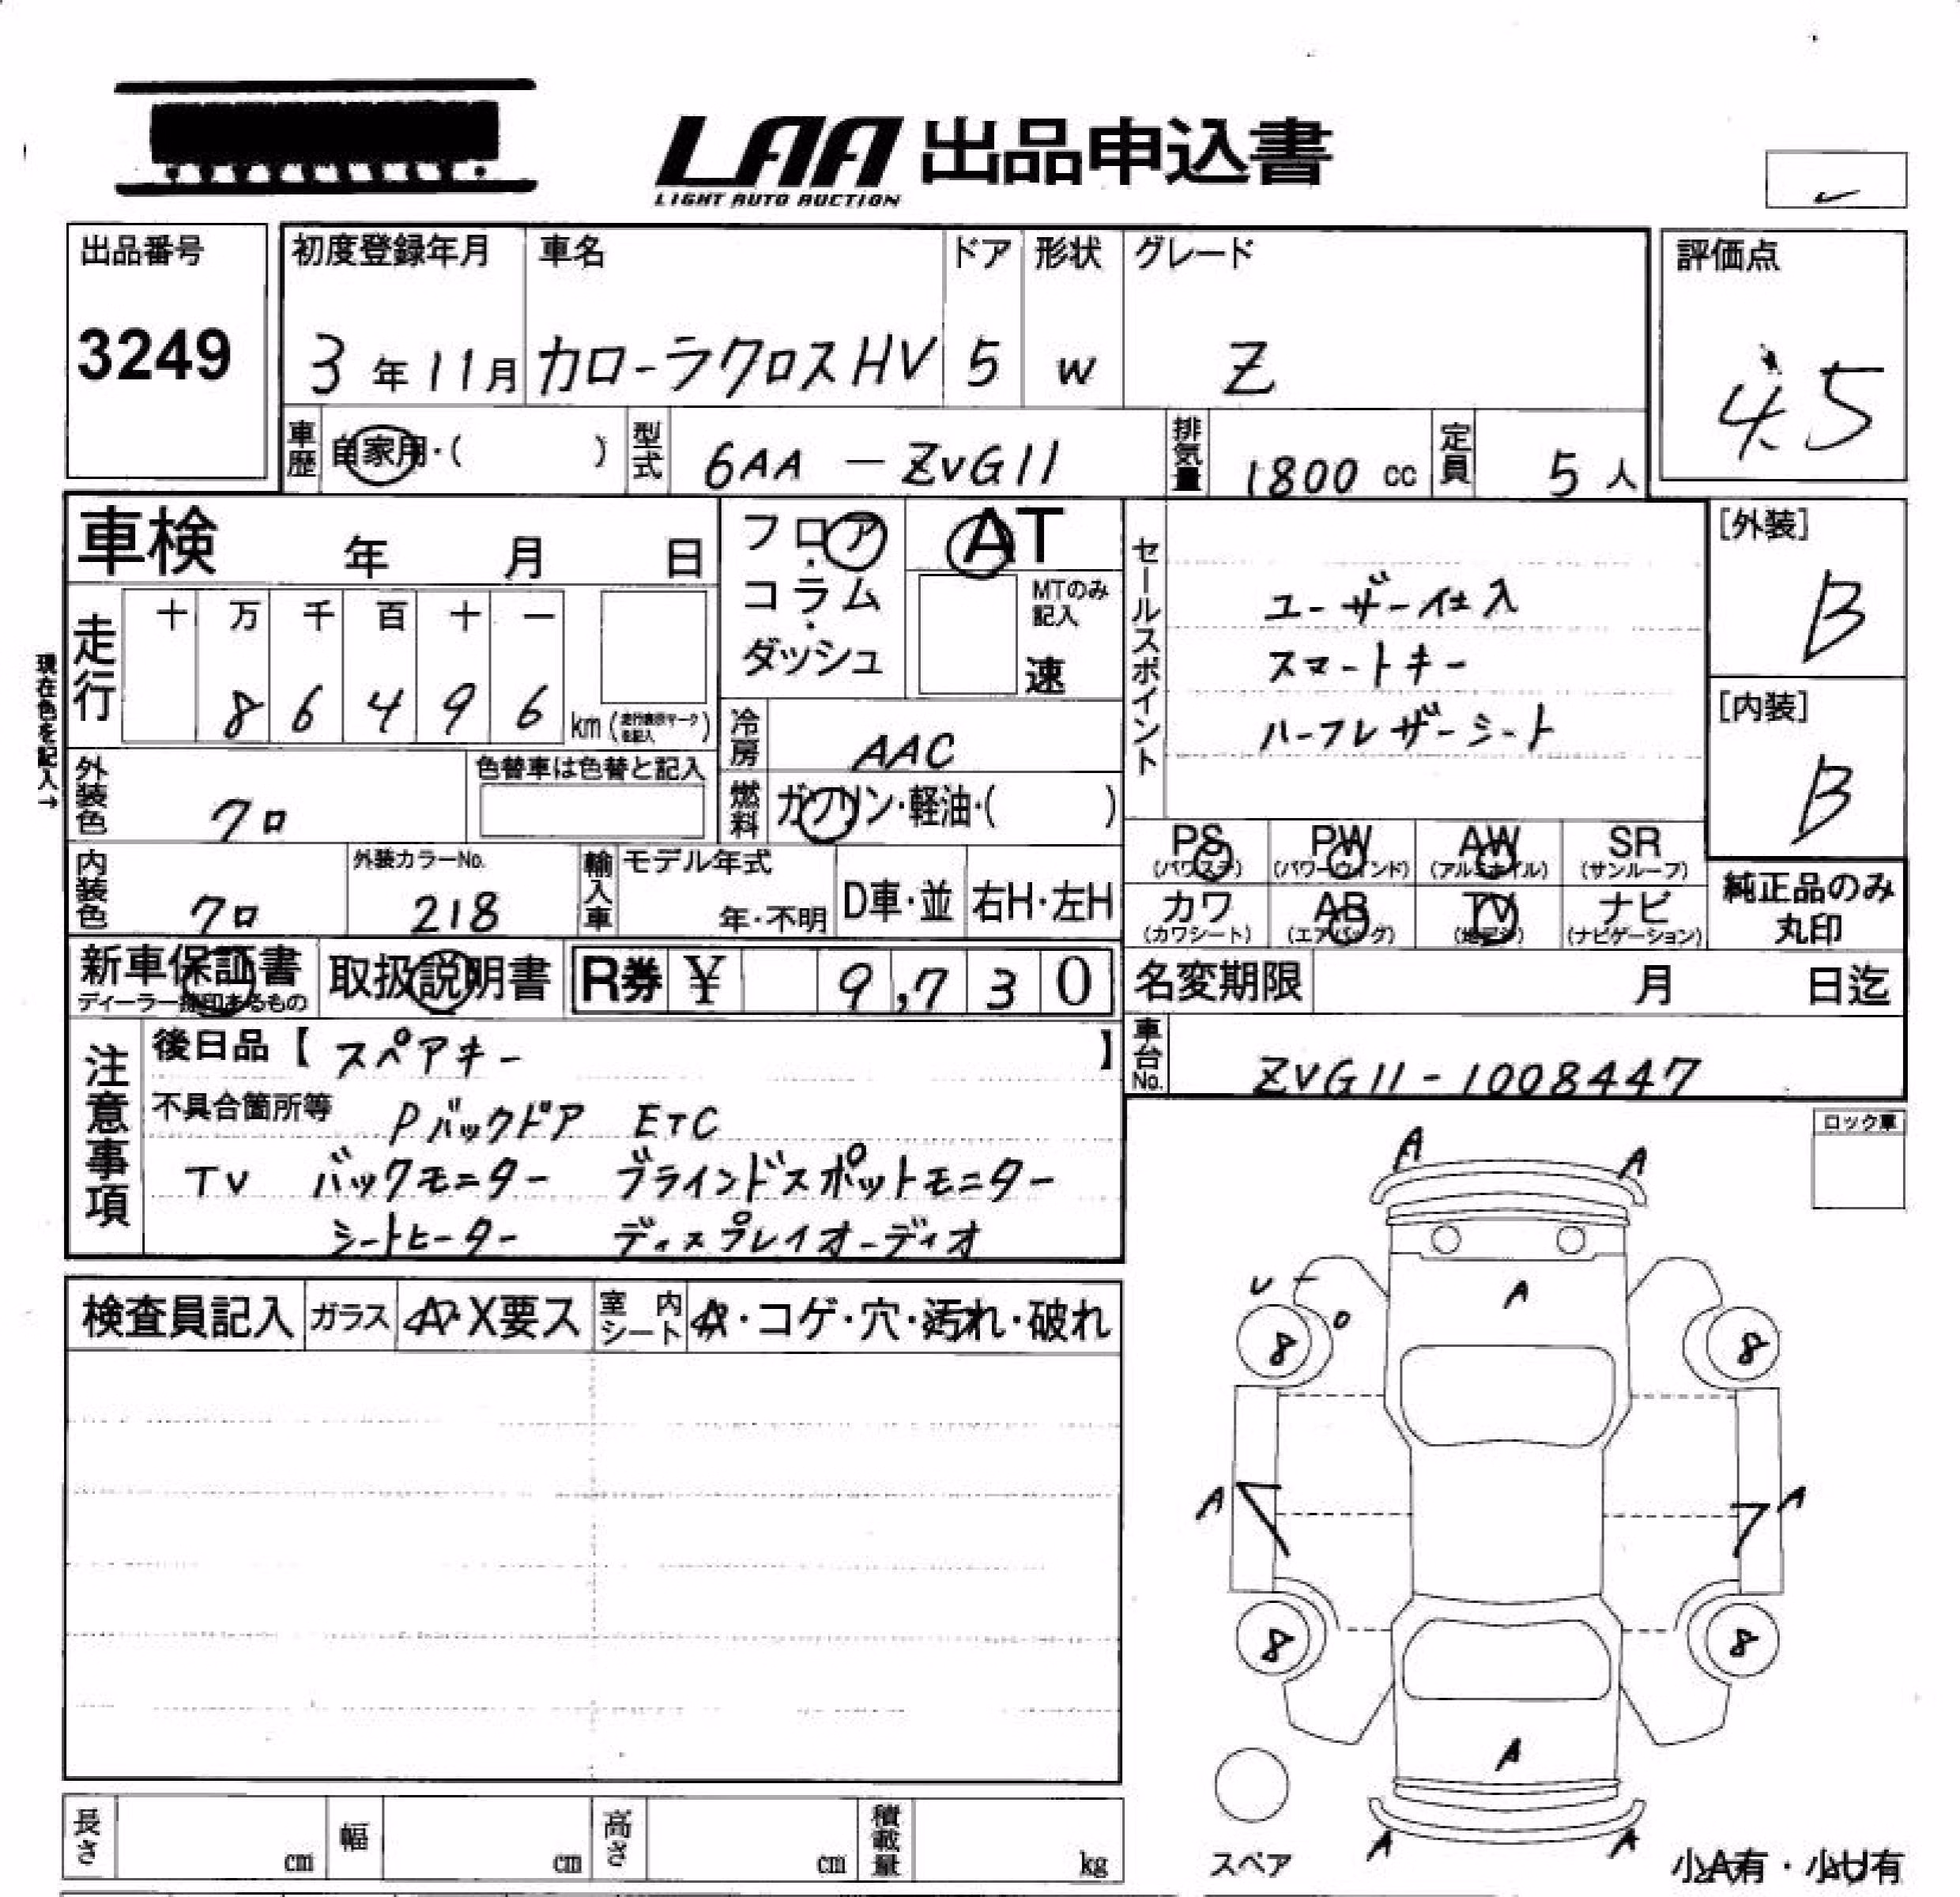 LAA 出品申込書
LIGHT AUTO AUCTION
出品番号
3249
初度登録年月
3年11月
車名
カローラクロスHV
ドア
5
形状
W
グレード
Z
評価点
4.5
車歴
自家用・( )
型式
6AA - ZVG11
排気量
1800 cc
定員
5人
車検 年 月 日
フロア・コラム・ダッシュ
AT
MTのみ記入
速
走行
十 万 千 百 十 一
8 6 4 9 6 km (走行表示マークを記入)
現在色を記入→
冷房
AAC
燃料
ガソリン・軽油・( )
外装色
クロ
色替車は色替と記入
内装色
クロ
外装カラーNo.
218
輸入車
モデル年式
年・不明
D車・並
右H・左H
セールスポイント
ユーザー仕入
スマートキー
ハーフレザーシート
[外装]
B
[内装]
B
PS (パワステ)
PW (パワーウィンド)
AW (アルミホイル)
SR (サンルーフ)
カワ (カワシート)
AB (エアバッグ)
TV (地デジ)
ナビ (ナビゲーション)
純正品のみ
丸印
新車保証書
ディーラー捺印あるもの
取扱説明書
R券 ¥ 9,730
名変期限 月 日迄
車台No.
ZVG11-1008447
注意事項
後日品【 スペアキー 】
不具合箇所等 Pバックドア ETC
TV バックモニター ブラインドスポットモニター
シートヒーター ディスプレイオーディオ
ロック車
検査員記入
ガラス
A・X要ス
室内シート
A・コゲ・穴・汚れ・破れ
A A
A
8 8
A A
8 8
A
A A
スペア
小A有・小U有
長さ cm
幅 cm
高さ cm
積載量 kg